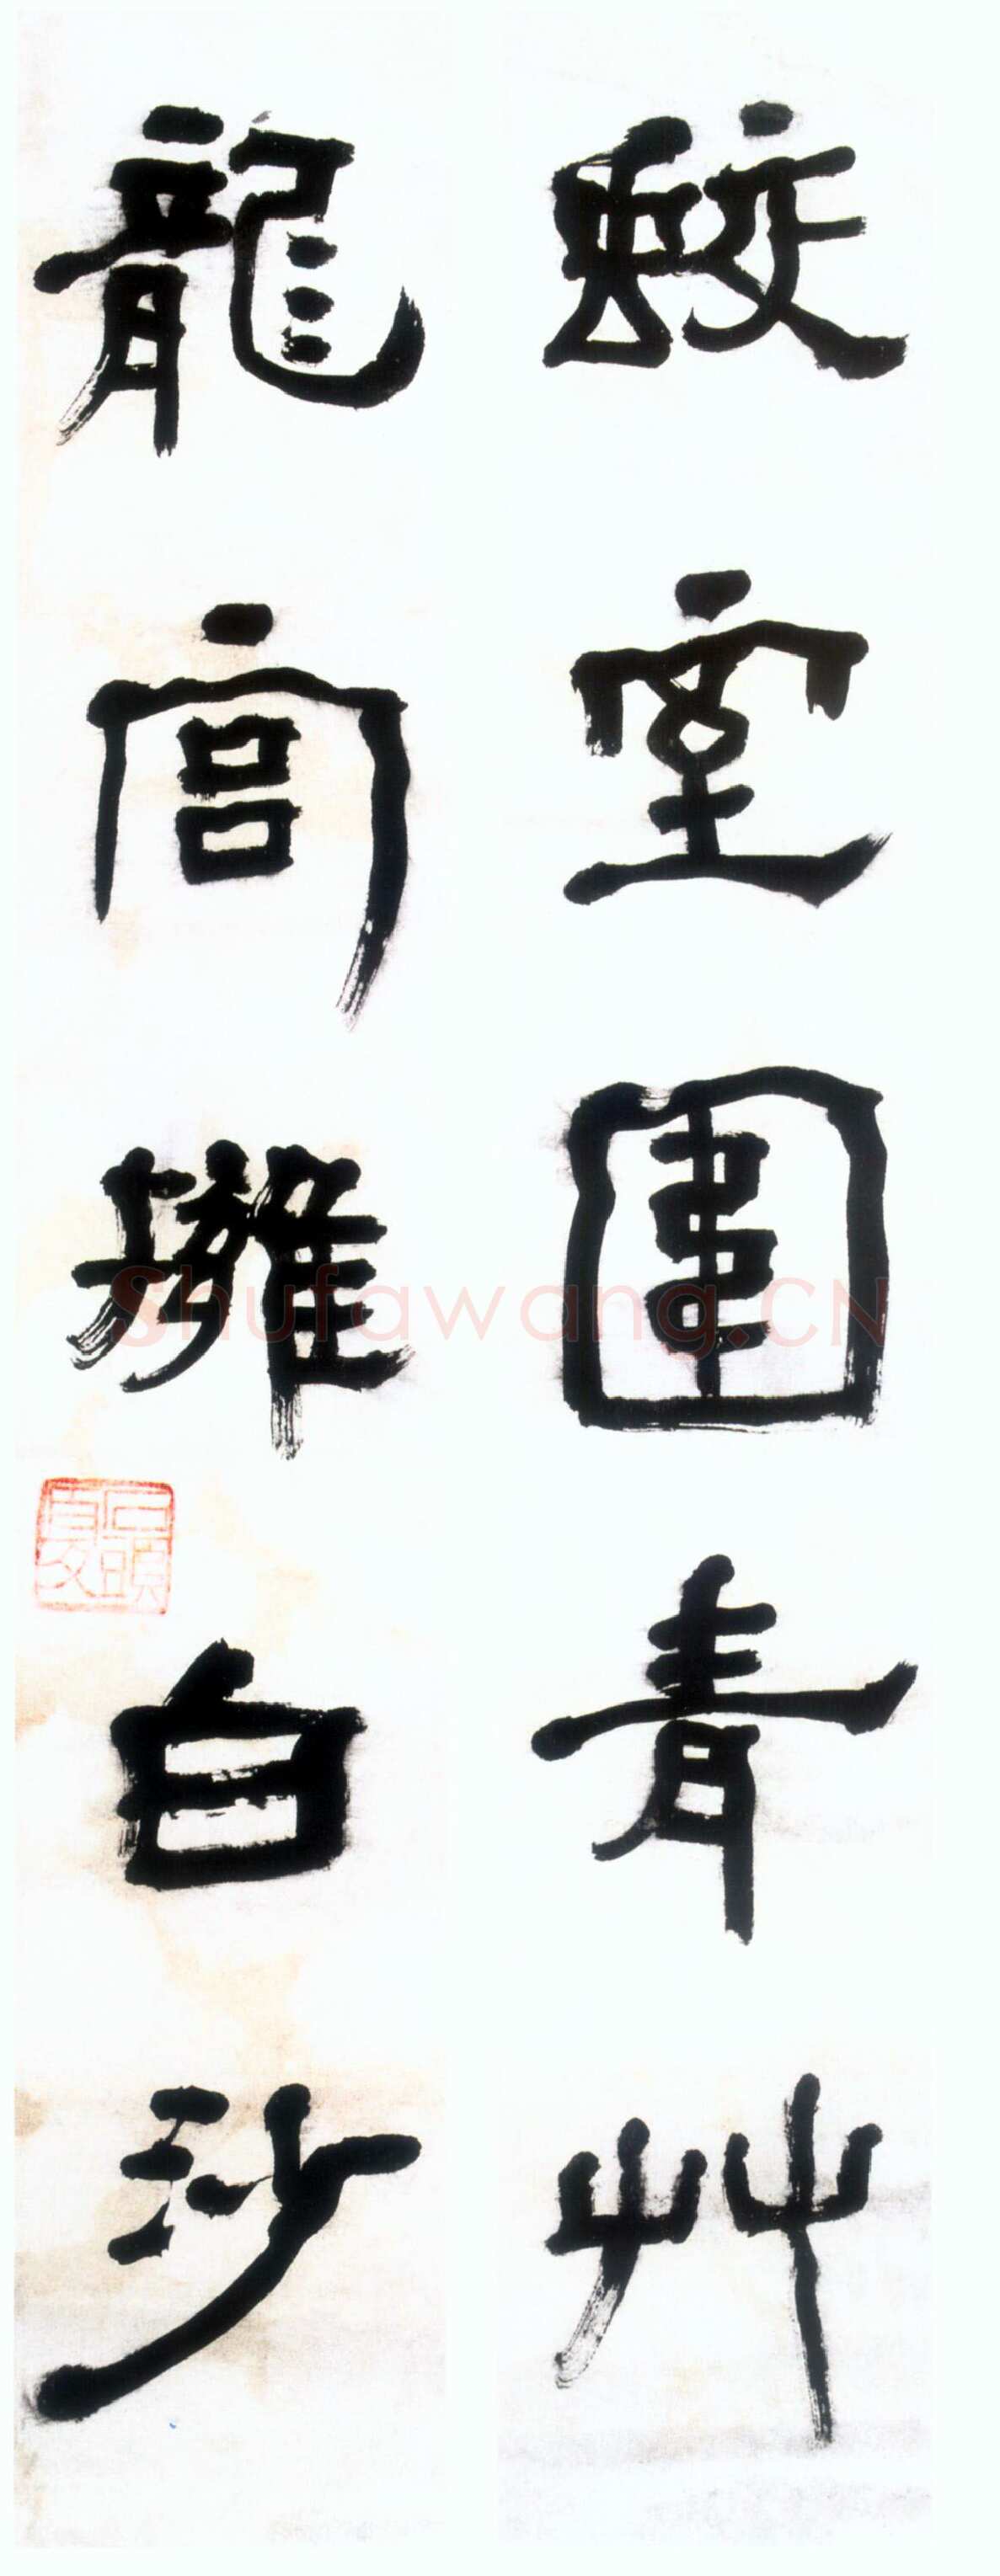 蛟室圍青艸
龍宮擁白沙
Shufawang.CN